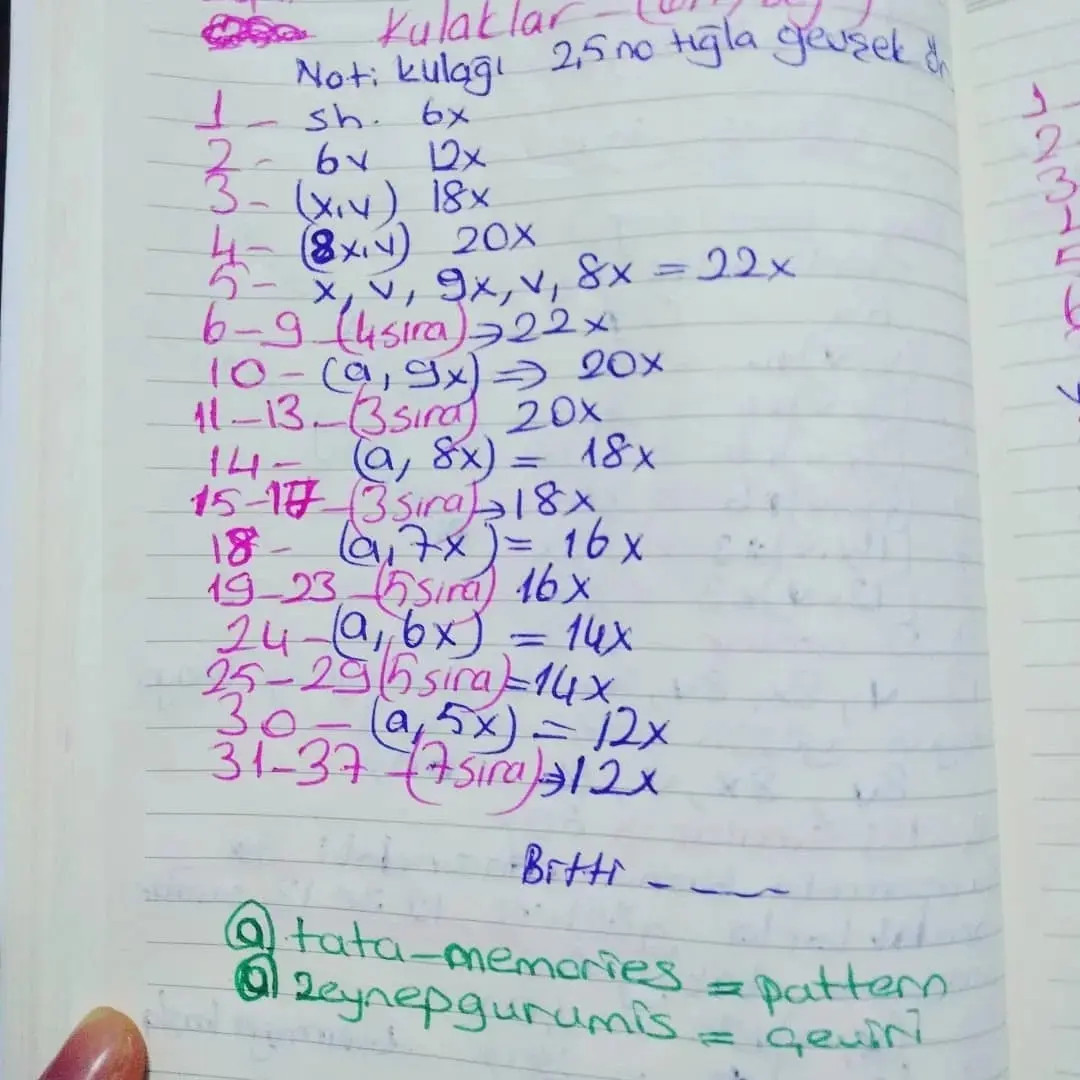 Kulaklar
Not: kulağı 2,5 no tığla gevşek
1 - sh. 6x
2 - 6v 12x
3 - (x,v) 18x
4 - (8x,v) 20x
5 - x, v, 9x, v, 8x = 22x
6-9 - (4 sıra) → 22x
10 - (a, 9x) ⇒ 20x
11-13 - (3 sıra) 20x
14 - (a, 8x) = 18x
15-17 - (3 sıra) → 18x
18 - (a, 7x) = 16x
19-23 - (5 sıra) 16x
24 - (a, 6x) = 14x
25-29 (5 sıra) = 14x
30 - (a, 5x) = 12x
31-37 - (7 sıra) → 12x
Bitti - - —
@ tata-memories = pattern
@ zeynepgurumis = çeviri
1 -
2
3
5